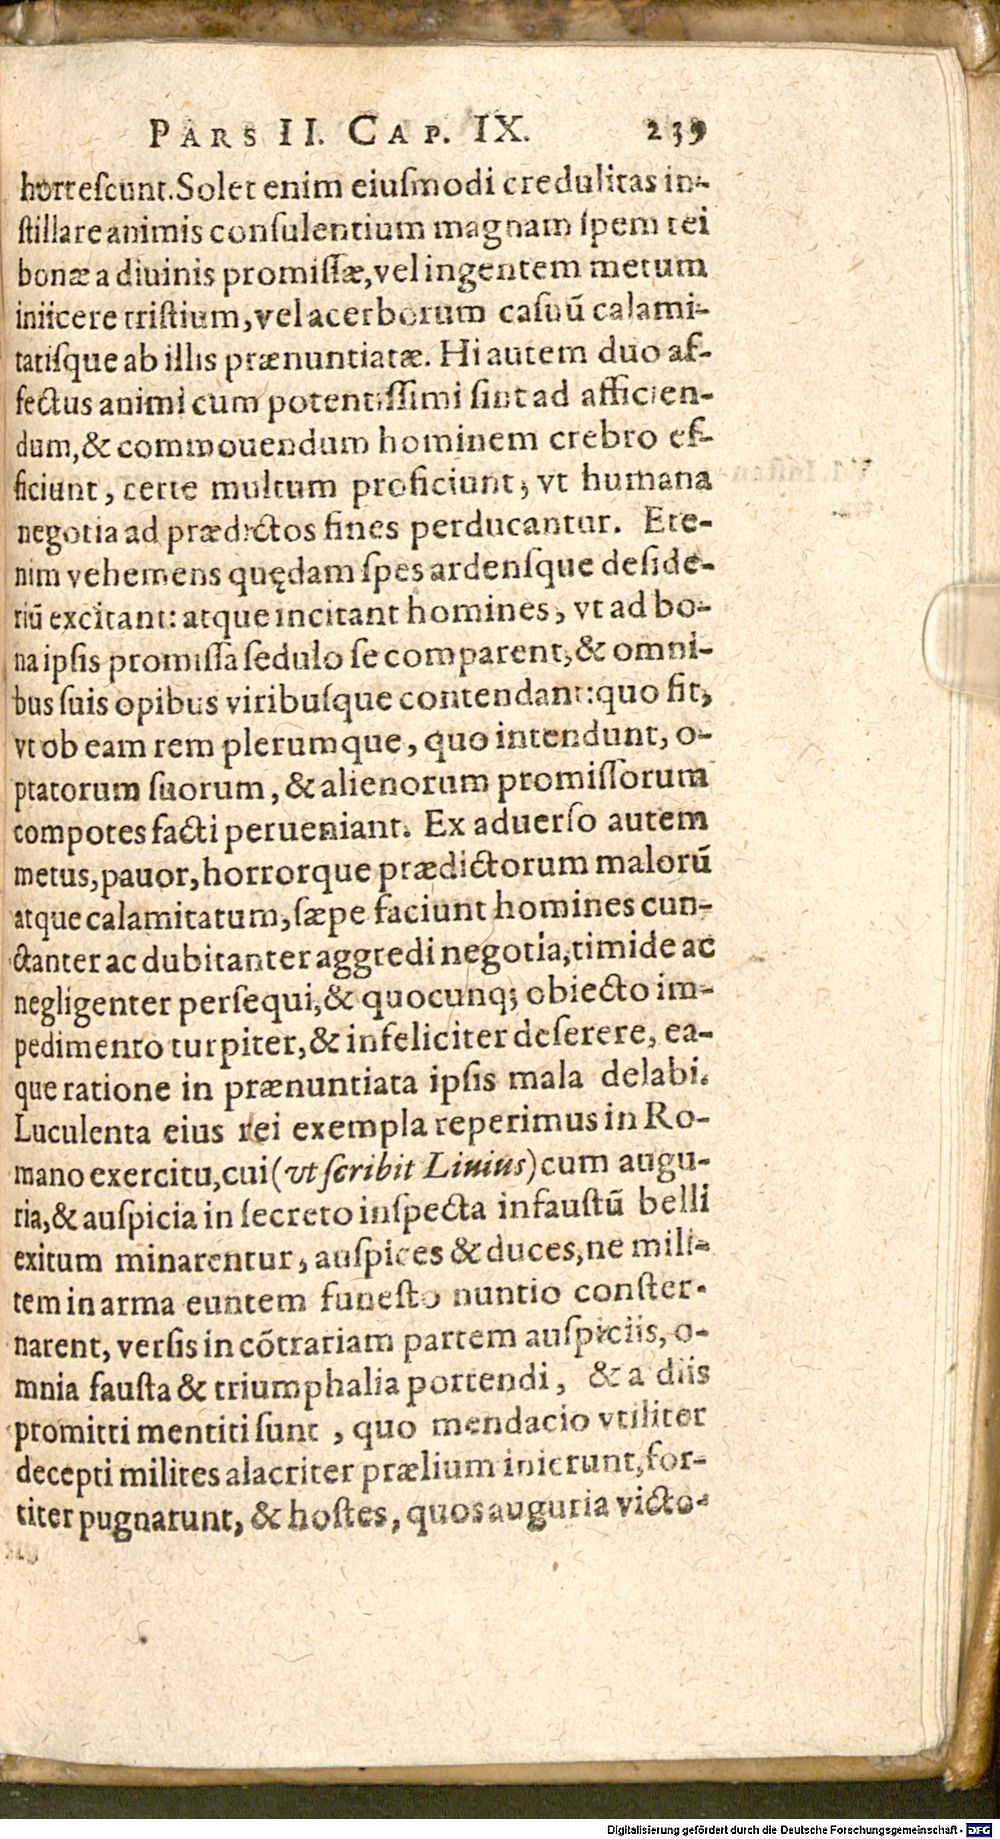 PARS II. CAP. IX. 239
horrescunt. Solet enim eiusmodi credulitas in-
stillare animis consulentium magnam spem rei
bonæ a diuinis promissæ, vel ingentem metum
iniicere tristium, vel acerborum casuũ calami-
tatisque ab illis prænuntiatæ. Hi autem duo af-
fectus animi cum potentissimi sint ad afficien-
dum, & commouendum hominem crebro ef-
ficiunt, certe multum proficiunt, vt humana
negotia ad prædictos fines perducantur. Ete-
nim vehemens quędam spes ardensque deside-
riũ excitant: atque incitant homines, vt ad bo-
na ipsis promissa sedulo se comparent, & omni-
bus suis opibus viribusque contendant: quo fit,
vt ob eam rem plerumque, quo intendunt, o-
ptatorum suorum, & alienorum promissorum
compotes facti perueniant. Ex aduerso autem
metus, pauor, horrorque prædictorum malorũ
atque calamitatum, sæpe faciunt homines cun-
ctanter ac dubitanter aggredi negotia, timide ac
negligenter persequi, & quocunq; obiecto im-
pedimento turpiter, & infeliciter deserere, ea-
que ratione in prænuntiata ipsis mala delabi.
Luculenta eius rei exempla reperimus in Ro-
mano exercitu, cui (vt scribit Liuius) cum augu-
ria, & auspicia in secreto inspecta infaustũ belli
exitum minarentur, auspices & duces, ne mili-
tem in arma euntem funesto nuntio conster-
narent, versis in cõtrariam partem auspiciis, o-
mnia fausta & triumphalia portendi, & a diis
promitti mentiti sunt, quo mendacio vtiliter
decepti milites alacriter prælium inierunt, for-
titer pugnarunt, & hostes, quos auguria victo-
Digitalisierung gefördert durch die Deutsche Forschungsgemeinschaft - DFG